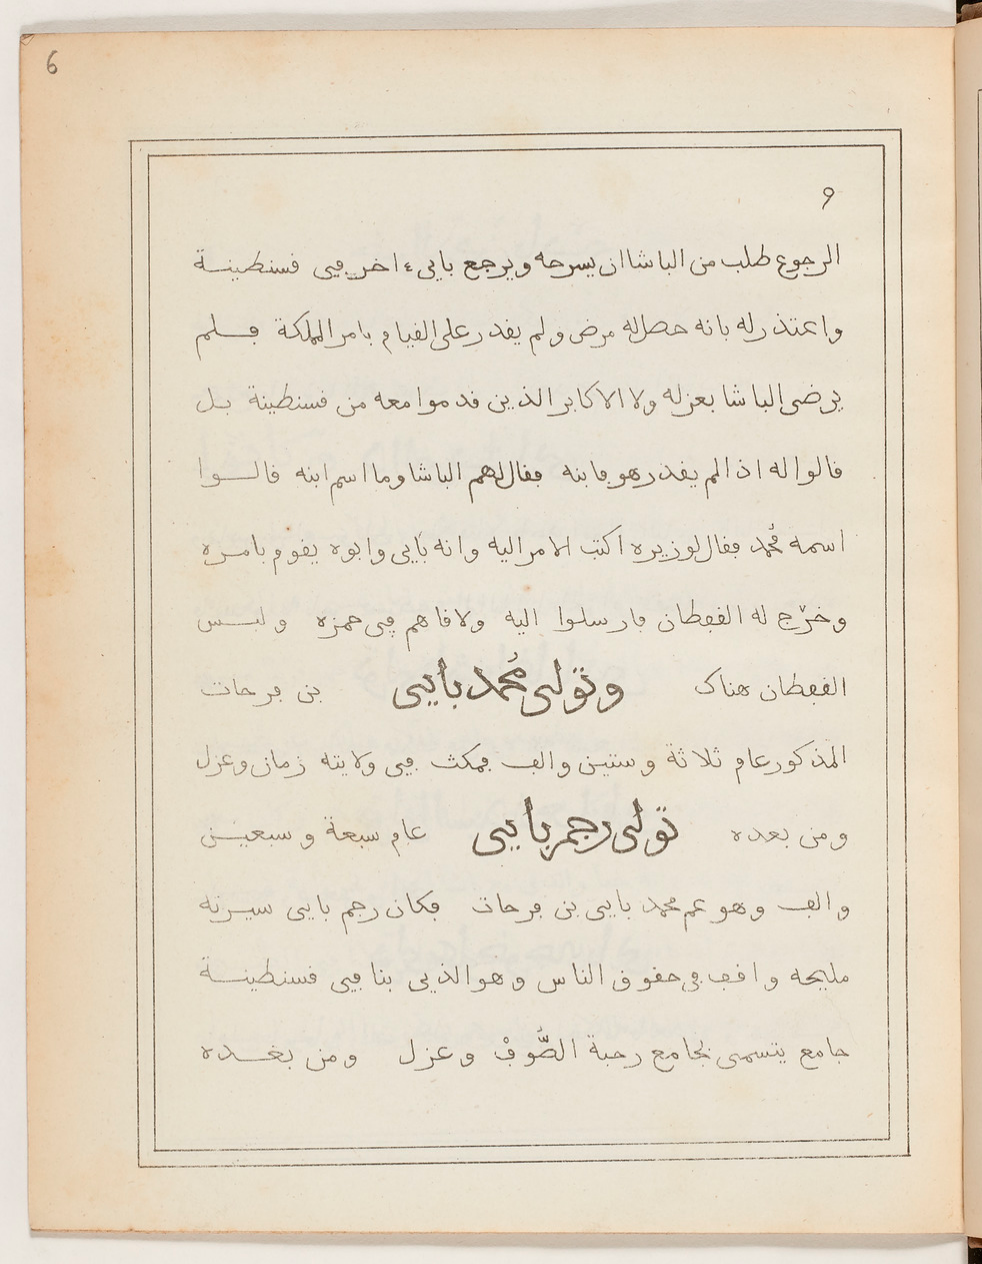 6
9
الرجوع طلب من الباشا ان يسرحه ويرجع بايي ء اخر ڢيى ڧسنطينة
واعتذر له بانه حصل له مرض ولم يڧدر على الڧيام بامر المملكة ڢلم
يرضى الباشا بعزله ولا الاكابر الذين ڧدموا معه من ڧسنطينة بل
ڧالوا له اذا لم يڧدر هو ڢابنه ڢڧال لهم الباشا وما اسم ابنه ڧالوا
اسمه مُحمد ڢڧال لوزيره اكتب الامر اليه وانه بايى وابوه يڧوم بامره
وخرّج له الڧڢطان ڢارسلوا اليه ولاڧاهم ڢى حمزه ولبس
الڧڢطان هناك وتولى مُحمد بايى بن ڢرحات
المذكور عام ثلاثة وستين والڢ ڢمكث ڢيى ولايته زمان وعزل
ومن بعده تولى رجم بايى عام سبعة وسبعين
والڢ وهو عم محمد بايى بن ڢرحات ڢكان رجم بايى سيرته
مليحه واڧڢ ڢى حڧوڧ الناس وهو الذيى بنا ڢيى ڧسنطينة
جامع يتسمى بجامع رحبة الصُّوڢْ وعزل ومن بعده